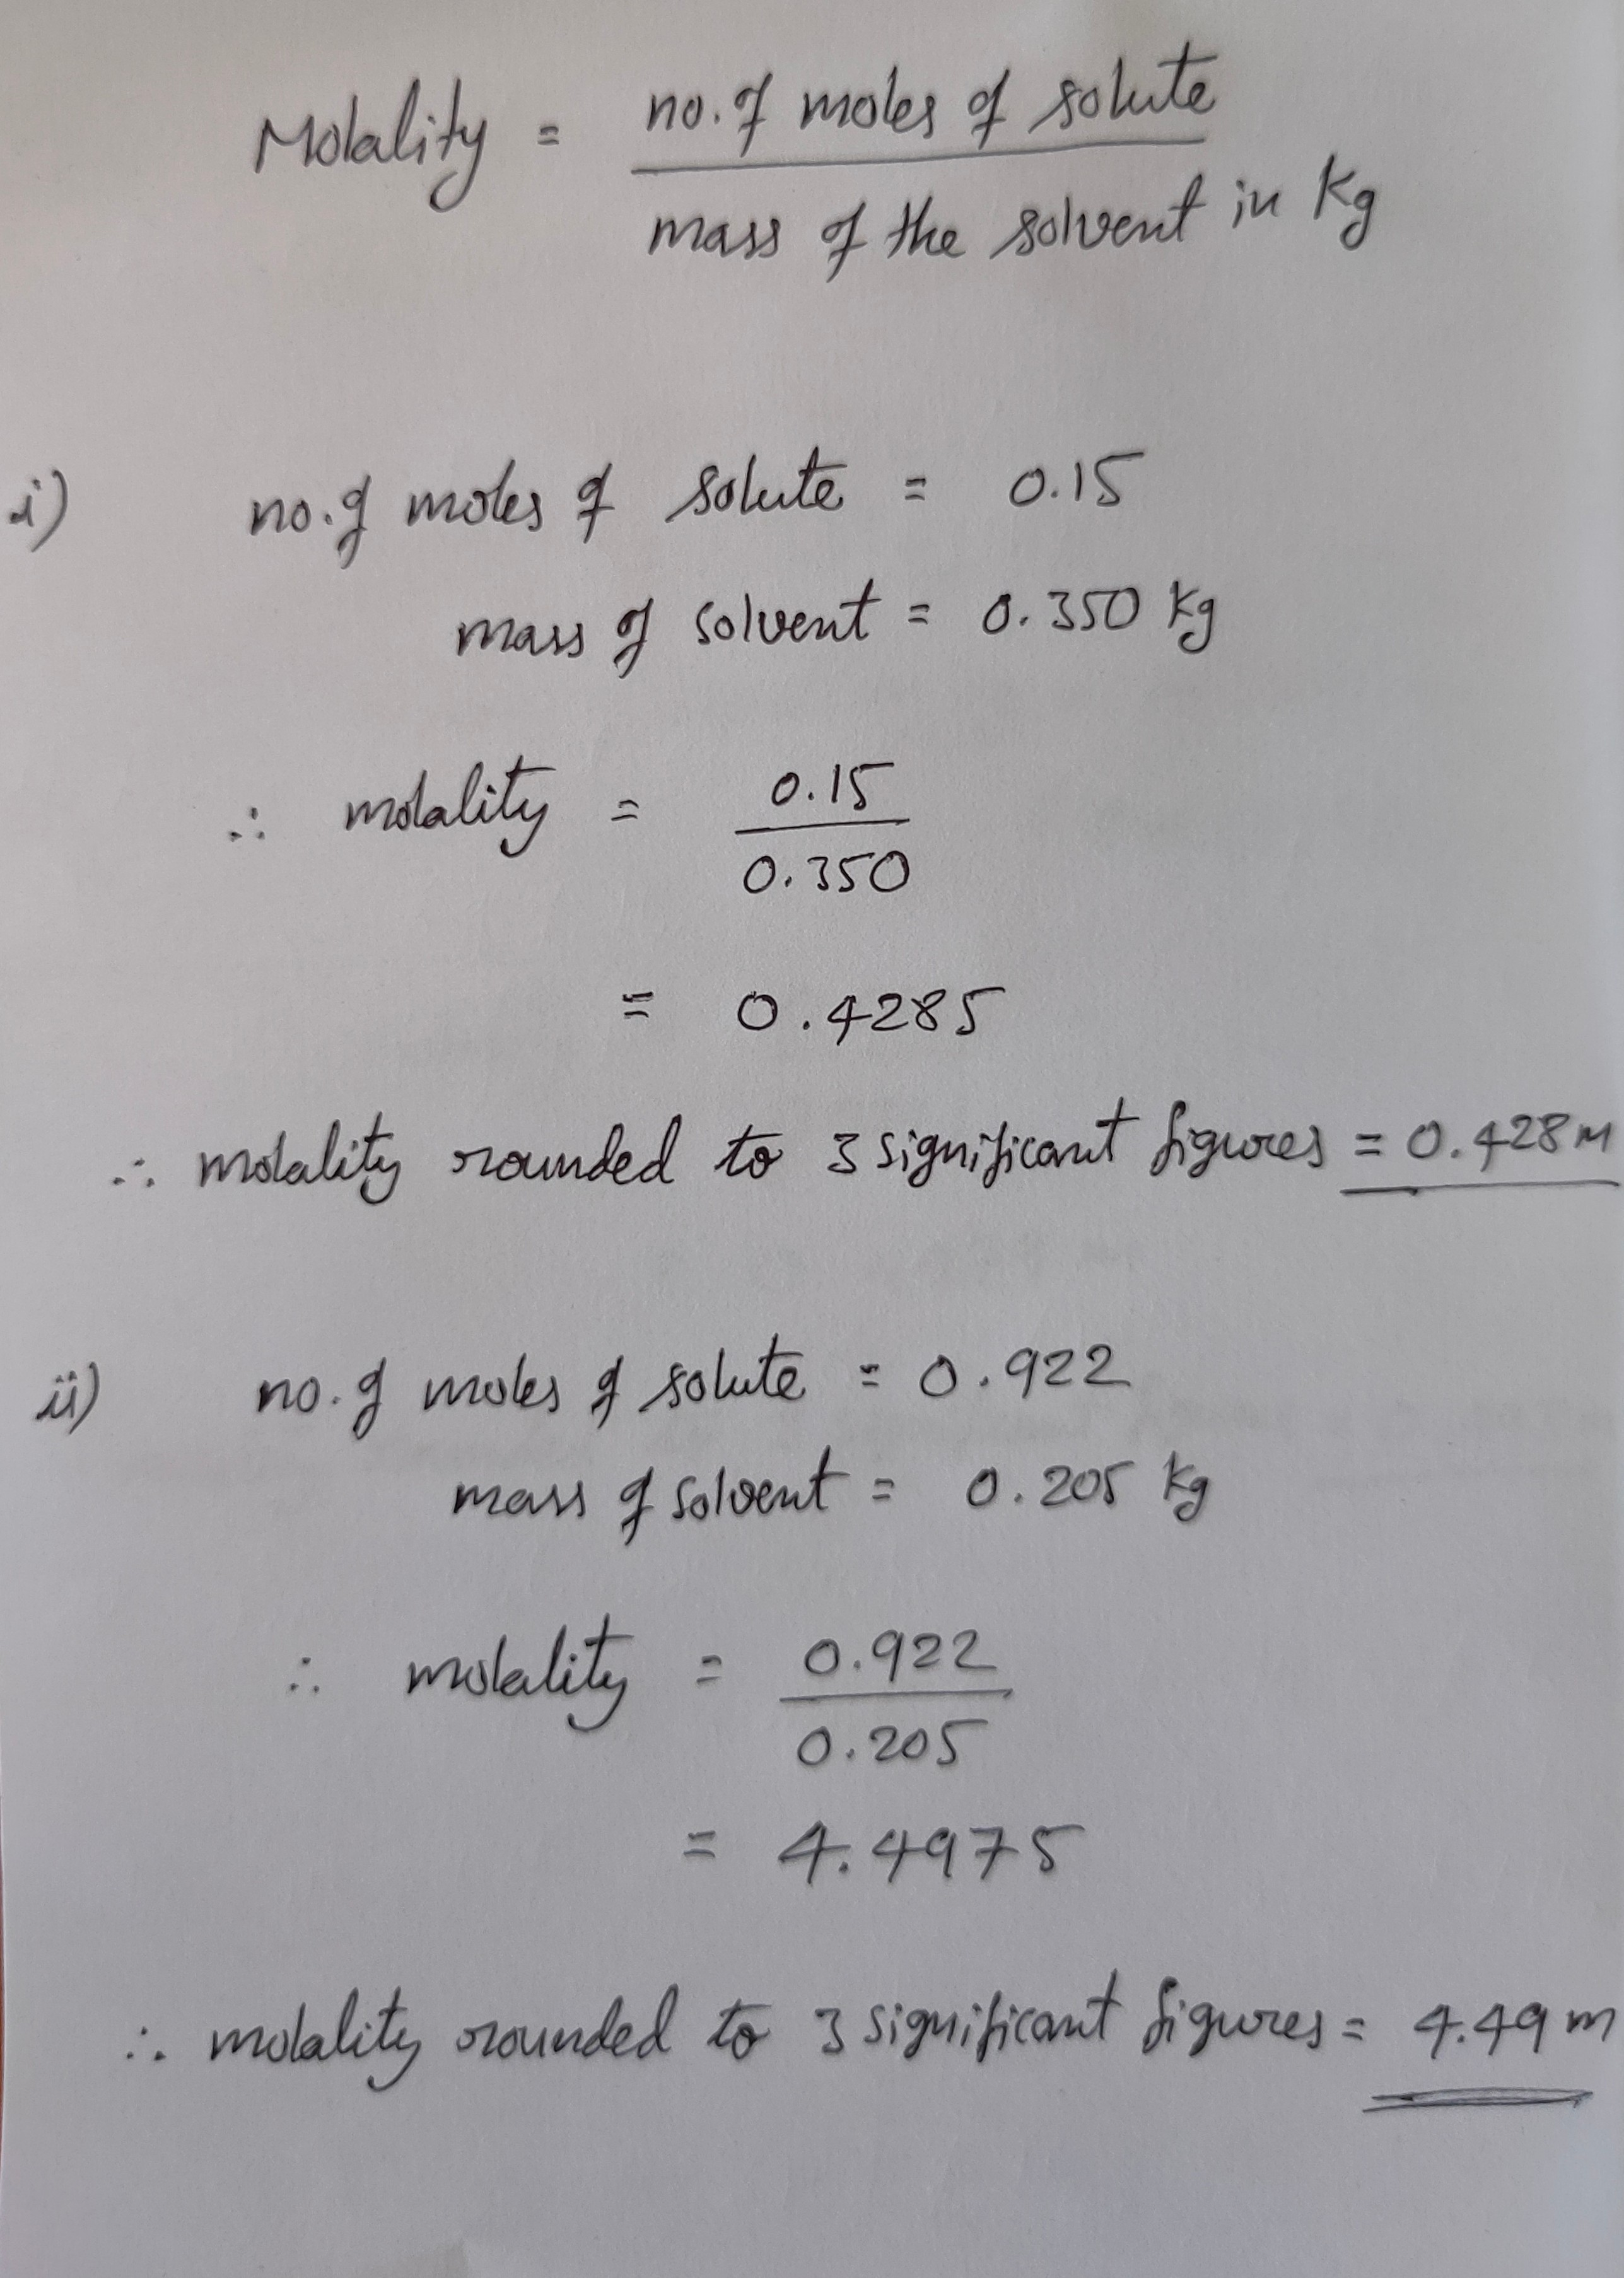 Molality = no. of moles of solute
mass of the solvent in Kg
i) no. of moles of solute = 0.15
mass of solvent = 0.350 Kg
∴ molality = 0.15
0.350
= 0.4285
∴ molality rounded to 3 significant figures = 0.428 M
ii) no. of moles of solute = 0.922
mass of solvent = 0.205 Kg
∴ molality = 0.922
0.205
= 4.4975
∴ molality rounded to 3 significant figures = 4.49 m